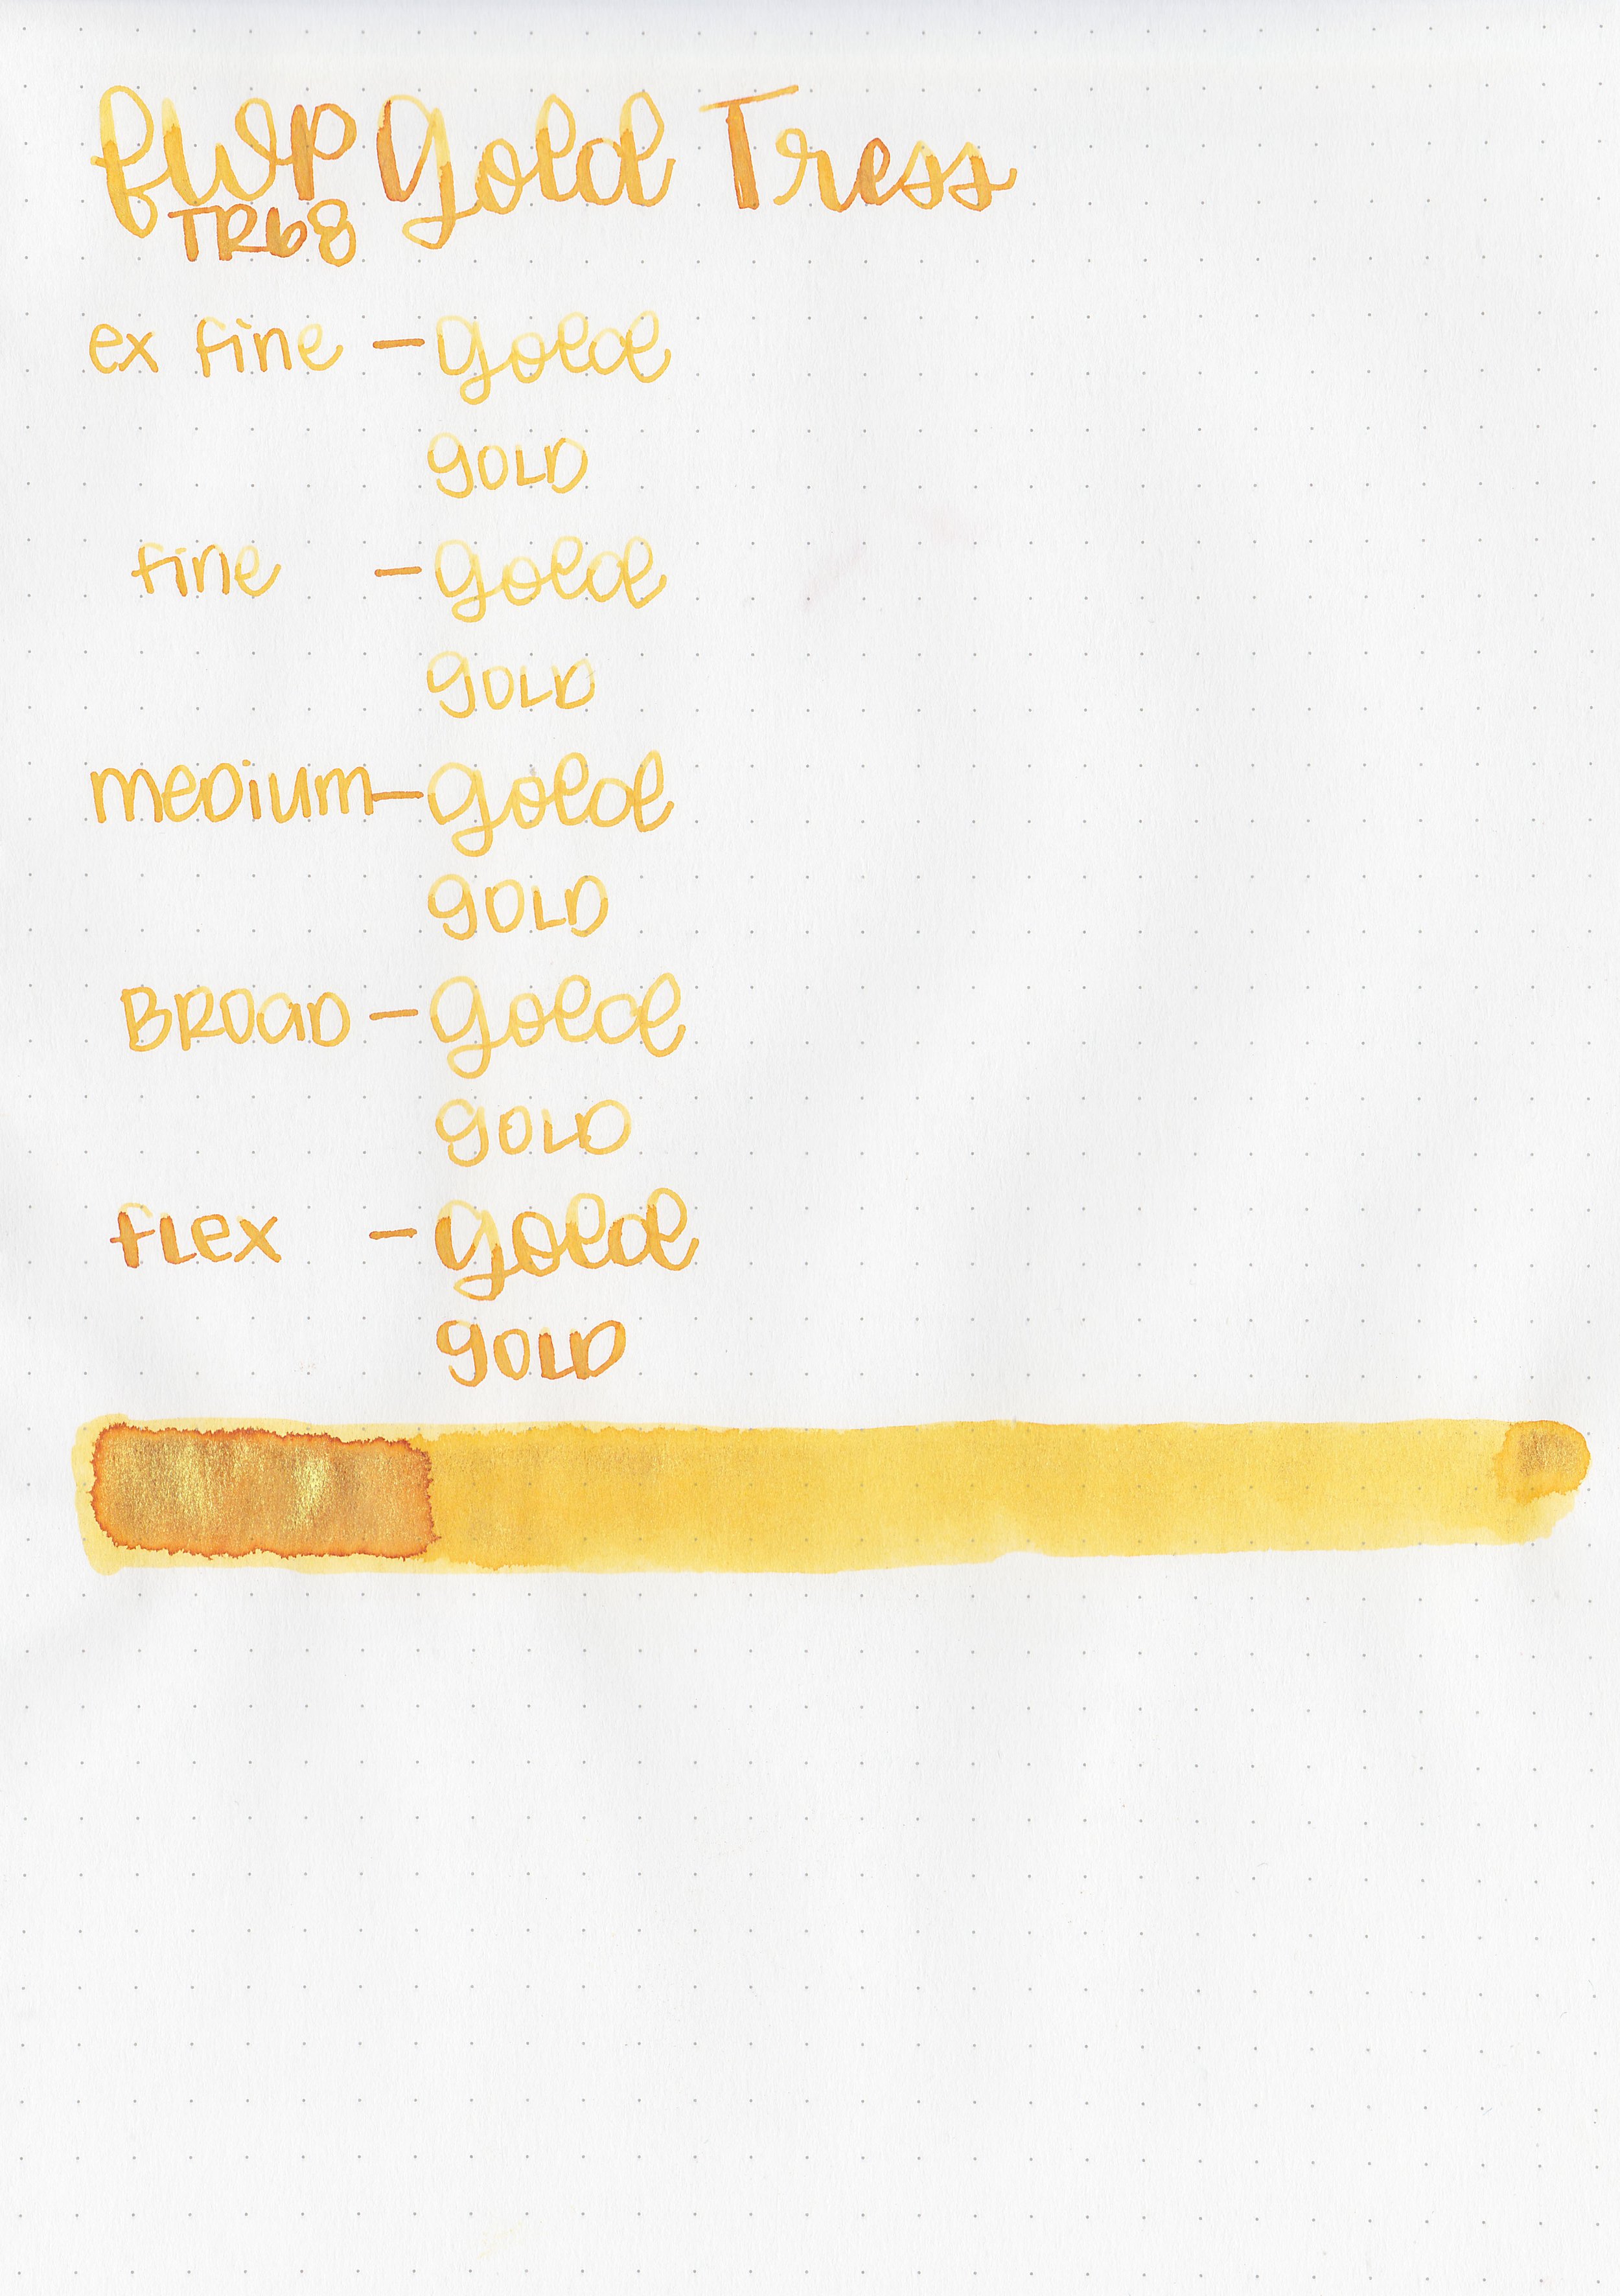 fWP Gold Tress
TR68
ex fine – gold
gOLD
fine – gold
gOLD
meDium – gold
gOLD
BROaD – gold
gOLD
fLex – gold
gOLD